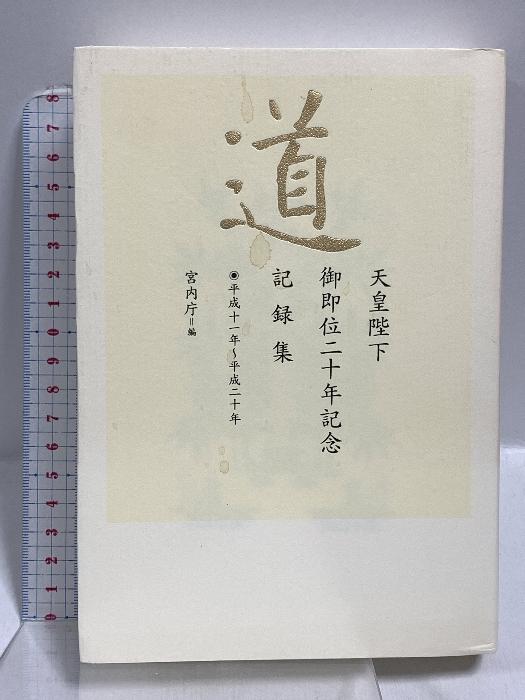 道
天皇陛下
御即位二十年記念
記録集
◉平成十一年～平成二十年
宮内庁＝編
8
7
6
5
4
3
2
1
0
9
8
7
6
5
4
3
2
1
0